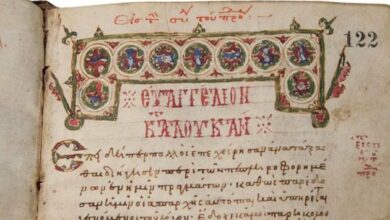 122
ΕΥΑΓΓΕΛΙΟΝ
ΚΑ ΛΟΥΚΑΝ
Επειδήπερ πολλοὶ ἐπεχείρησαν ἀνατάξα
σθαι διήγησιν περὶ τῶν πεπληροφορημέ
νων ἐν ἡμῖν πραγμάτων· καθὼς παρέδο
σαν ἡμῖν οἱ ἀπαρχῆς αὐτόπται καὶ ὑπηρέται
γενόμενοι τοῦ λόγου· ἔδοξε κἀμοὶ παρηκολου